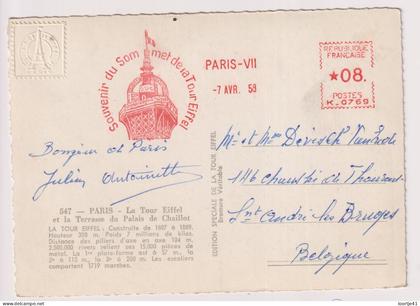 Souvenir du Sommet de la Tour Eiffel
PARIS-VII
-7 AVR. 59
REPUBLIQUE
FRANCAISE
★08.
POSTES
K.0769
Bonjour de Paris
Julien Antoinette
547 — PARIS - La Tour Eiffel
et la Terrasse du Palais de Chaillot
LA TOUR EIFFEL - Construite de 1887 à 1889.
Hauteur 300 m. Poids 7 millions de kilos.
Distance des piliers d'axe en axe 104 m.
2.500.000 rivets relient ses 15.000 pièces de
métal. La 1re plate-forme est à 57 m., la
2e à 115 m., la 3e à 280 m. Les escaliers
comportent 1719 marches.
EDITION SPECIALE DE LA TOUR EIFFEL
Bromure Véritable
Mr et Mme
146 chaussée de Thourout
St André lez Bruges
Belgique